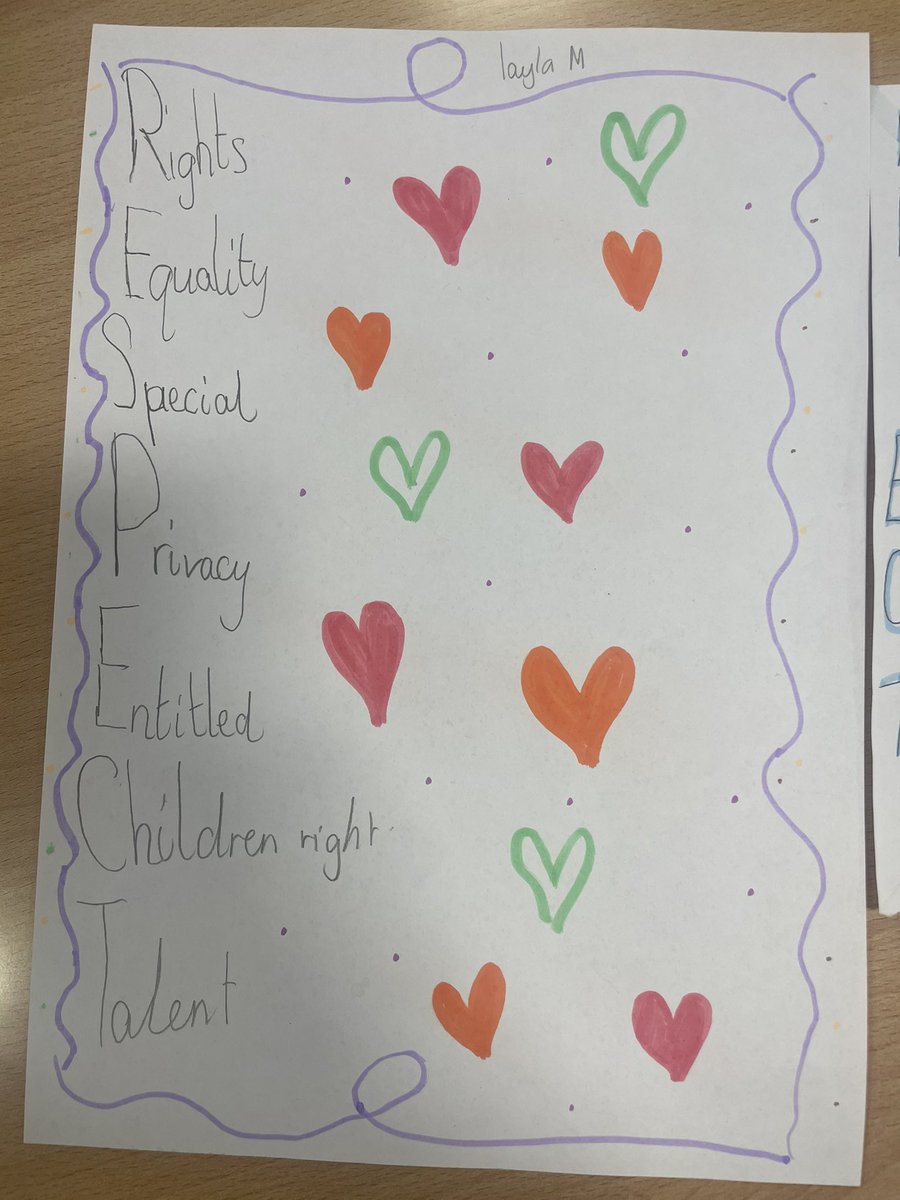 layla M
Rights
Equality
Special
Privacy
Entitled
Children right
Talent